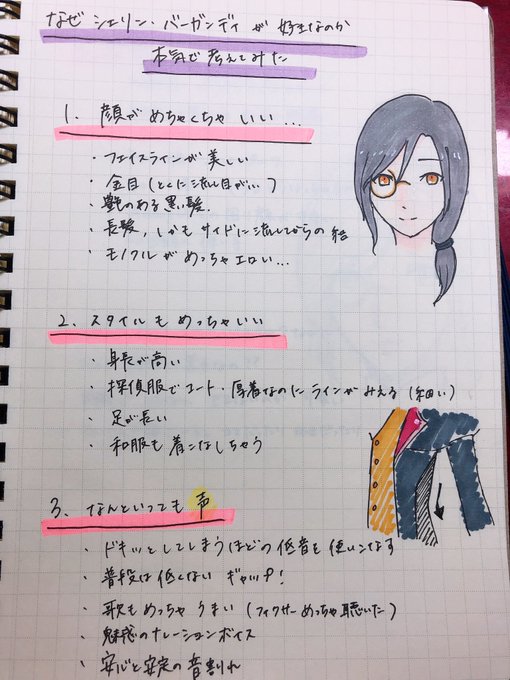 なぜ シェリン・バーガンディ が 好きなのか
本気で 考えてみた
1. 顔が めちゃくちゃ いい…
・フェイスラインが 美しい
・金目(とくに流し目が…)
・艶のある 黒髪.
・長髪、しかもサイドに流してからの 結
・モノクルが めっちゃエロい…
2. スタイルも めっちゃいい
・身長が高い
・探偵服でコート・厚着なのに ラインがみえる(細い)
・足が長い
・和服も 着こなしちゃう
3. なんといっても 声
・ドキッとしてしまうほどの 低音を 使いこなす
・普段は低くない ギャップ!
・歌もめっちゃ うまい(フィクサーめっちゃ聴いた)
・魅惑のナレーションボイス
・安心と安定の音割れ